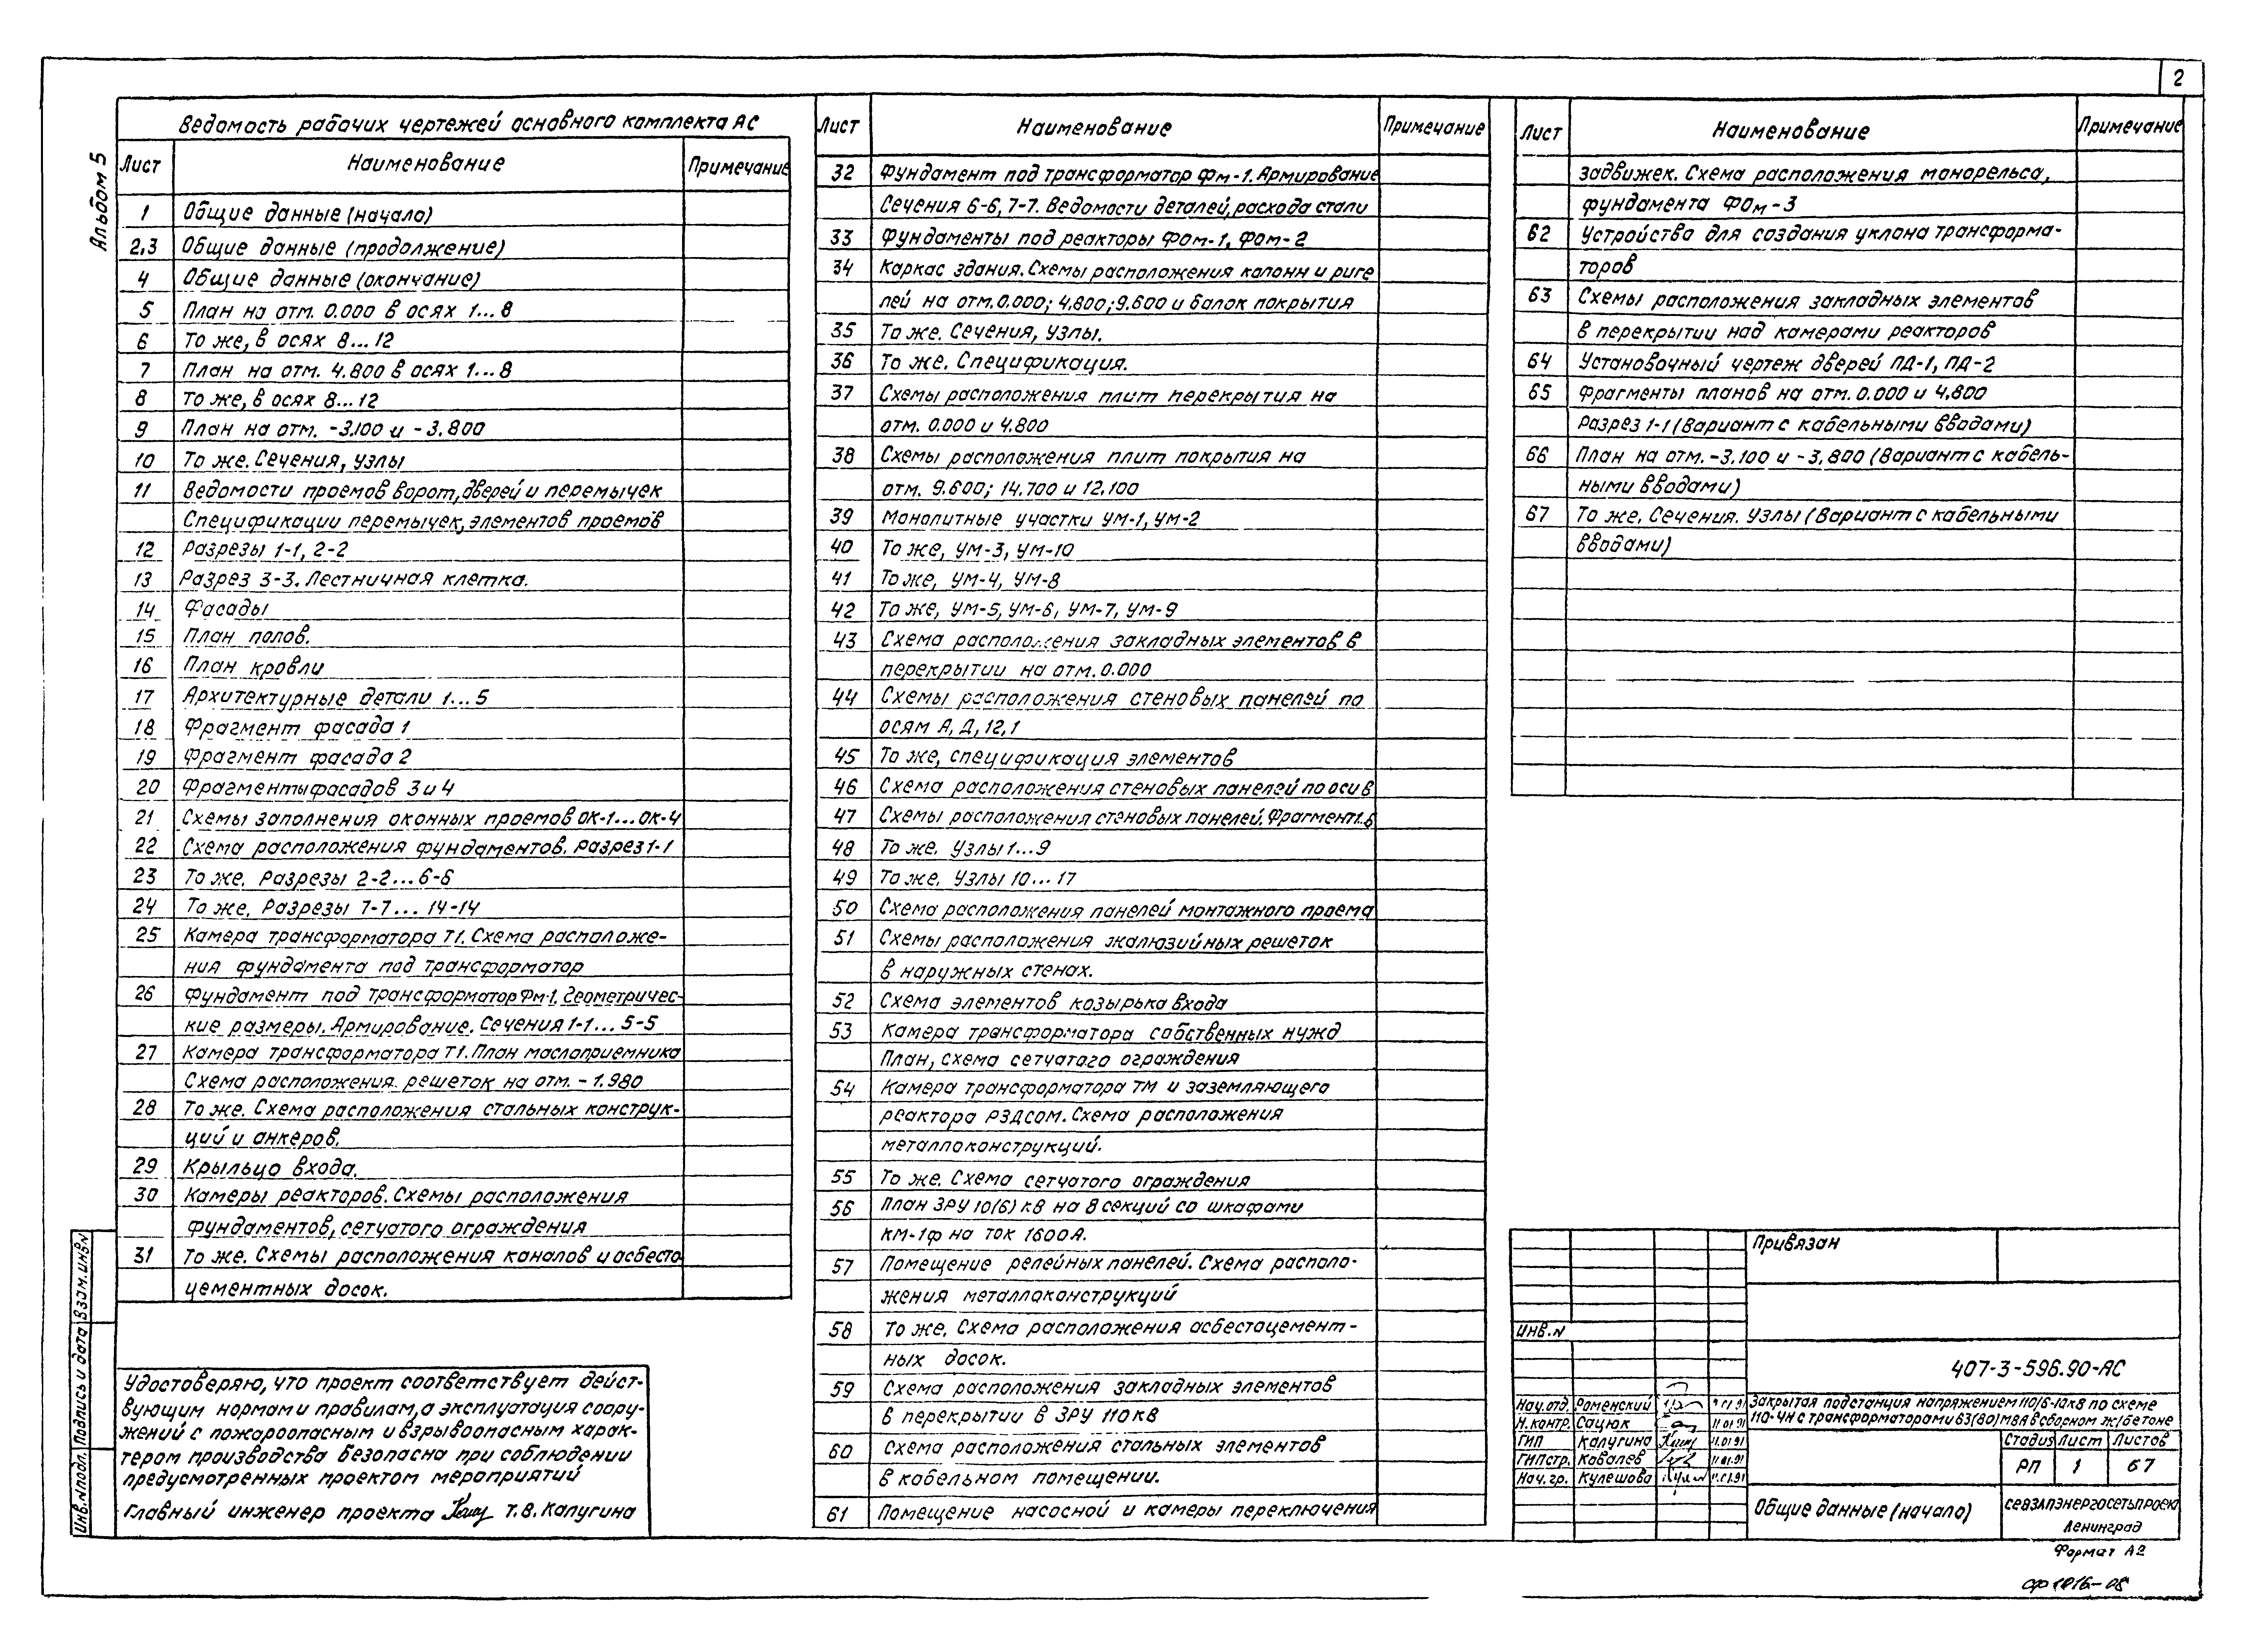 2
Альбом 5
Ведомость рабочих чертежей основного комплекта АС
Лист Наименование Примечание
1 Общие данные (начало)
2,3 Общие данные (продолжение)
4 Общие данные (окончание)
5 План на отм. 0.000 в осях 1...8
6 То же, в осях 8...12
7 План на отм. 4.800 в осях 1...8
8 То же, в осях 8...12
9 План на отм. -3.100 и -3.800
10 То же. Сечения, узлы
11 Ведомости проемов ворот, дверей и перемычек
Спецификации перемычек, элементов проемов
12 Разрезы 1-1, 2-2
13 Разрез 3-3. Лестничная клетка.
14 Фасады
15 План полов.
16 План кровли
17 Архитектурные детали 1...5
18 Фрагмент фасада 1
19 Фрагмент фасада 2
20 Фрагменты фасадов 3 и 4
21 Схемы заполнения оконных проемов ОК-1...ОК-4
22 Схема расположения фундаментов. Разрез 1-1
23 То же. Разрезы 2-2...6-6
24 То же. Разрезы 7-7...14-14
25 Камера трансформатора Т1. Схема расположе-
ния фундамента под трансформатор
26 Фундамент под трансформатор Фм-1. Геометричес-
кие размеры. Армирование. Сечения 1-1...5-5
27 Камера трансформатора Т1. План маслоприемника
Схема расположения решеток на отм. -1.980
28 То же. Схема расположения стальных конструк-
ций и анкеров.
29 Крыльцо входа.
30 Камеры реакторов. Схемы расположения
фундаментов, сетчатого ограждения
31 То же. Схемы расположения каналов и асбесто
цементных досок.
Удостоверяю, что проект соответствует дейст-
вующим нормам и правилам, а эксплуатация соору-
жений с пожароопасным и взрывоопасным харак-
тером производства безопасна при соблюдении
предусмотренных проектом мероприятий
Главный инженер проекта Т.В. Калугина
Инв.N подл. Подпись и дата Взам.инв.N
Лист Наименование Примечание
32 Фундамент под трансформатор Фм-1. Армирование
Сечения 6-6, 7-7. Ведомости деталей, расхода стали
33 Фундаменты под реакторы ФОм-1, ФОм-2
34 Каркас здания. Схемы расположения колонн и риге
лей на отм. 0.000; 4.800; 9.600 и балок покрытия
35 То же. Сечения, узлы.
36 То же. Спецификация.
37 Схемы расположения плит перекрытия на
отм. 0.000 и 4.800
38 Схемы расположения плит покрытия на
отм. 9.600; 14.700 и 12.100
39 Монолитные участки УМ-1, УМ-2
40 То же, УМ-3, УМ-10
41 То же, УМ-4, УМ-8
42 То же, УМ-5, УМ-6, УМ-7, УМ-9
43 Схема расположения закладных элементов в
перекрытии на отм. 0.000
44 Схемы расположения стеновых панелей по
осям А, Д, 12, 1
45 То же, спецификация элементов
46 Схема расположения стеновых панелей по оси В
47 Схемы расположения стеновых панелей. Фрагмент
48 То же. Узлы 1...9
49 То же. Узлы 10...17
50 Схема расположения панелей монтажного проема
51 Схемы расположения жалюзийных решеток
в наружных стенах.
52 Схема элементов козырька входа
53 Камера трансформатора собственных нужд
План, схема сетчатого ограждения
54 Камера трансформатора ТМ и заземляющего
реактора РЗДСОМ. Схема расположения
металлоконструкций.
55 То же. Схема сетчатого ограждения
56 План ЗРУ 10(6) кВ на 8 секций со шкафами
КМ-1ф на ток 1600А.
57 Помещение релейных панелей. Схема располо-
жения металлоконструкций
58 То же. Схема расположения асбестоцемент-
ных досок.
59 Схема расположения закладных элементов
в перекрытии в ЗРУ 110 кВ
60 Схема расположения стальных элементов
в кабельном помещении.
61 Помещение насосной и камеры переключения
Лист Наименование Примечание
задвижек. Схема расположения монорельса,
фундамента ФОм-3
62 Устройства для создания уклона трансформа-
торов
63 Схемы расположения закладных элементов
в перекрытии над камерами реакторов
64 Установочный чертеж дверей ПД-1, ПД-2
65 Фрагменты планов на отм. 0.000 и 4,800
Разрез 1-1 (Вариант с кабельными вводами)
66 План на отм. -3.100 и -3,800 (Вариант с кабель-
ными вводами)
67 То же. Сечения. Узлы (Вариант с кабельными
вводами)
Привязан
Инв.N
407-3-596.90-АС
Нач.отд. Роменский
Н.контр. Сацюк 11.01.91
ГИП Калугина 11.01.91
ГИПстр. Ковалев 11.01.91
Нач.гр. Кулешова 11.01.91
Закрытая подстанция напряжением 110/6-10кВ по схеме
110-4Н с трансформаторами 63(80) МВА в сборном ж/бетоне
Стадия Лист Листов
РП 1 67
Общие данные (начало)
СЕВЗАПЭНЕРГОСЕТЬПРОЕКТ
Ленинград
Формат А2